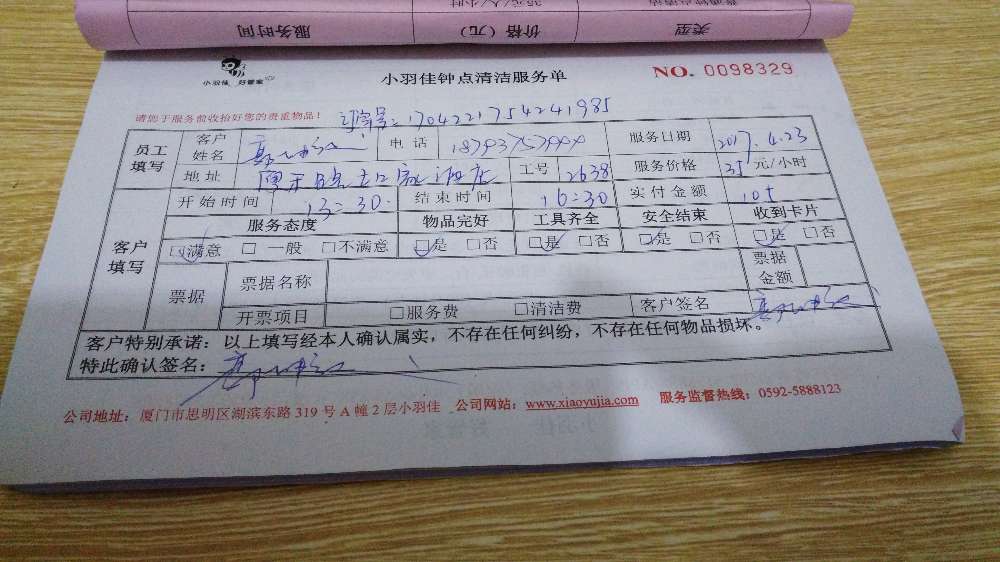 服务时间 价格（元） 类型
小羽佳 好管家
小羽佳钟点清洁服务单
NO. 0098329
请您于服务前收拾好您的贵重物品！ 订单号：1704221754241985
员工填写 客户姓名 电话 服务日期 2017.4.23
地址 工号 2638 服务价格 35 元/小时
开始时间 13:30 结束时间 16:30 实付金额 105
客户填写 服务态度 物品完好 工具齐全 安全结束 收到卡片
□满意 □一般 □不满意 □是 □否 □是 □否 □是 □否 □是 □否
票据 票据名称 票据金额
开票项目 □服务费 □清洁费 客户签名
客户特别承诺：以上填写经本人确认属实，不存在任何纠纷，不存在任何物品损坏。
特此确认签名：
公司地址：厦门市思明区湖滨东路 319 号 A 幢 2 层小羽佳 公司网站：www.xiaoyujia.com 服务监督热线：0592-5888123